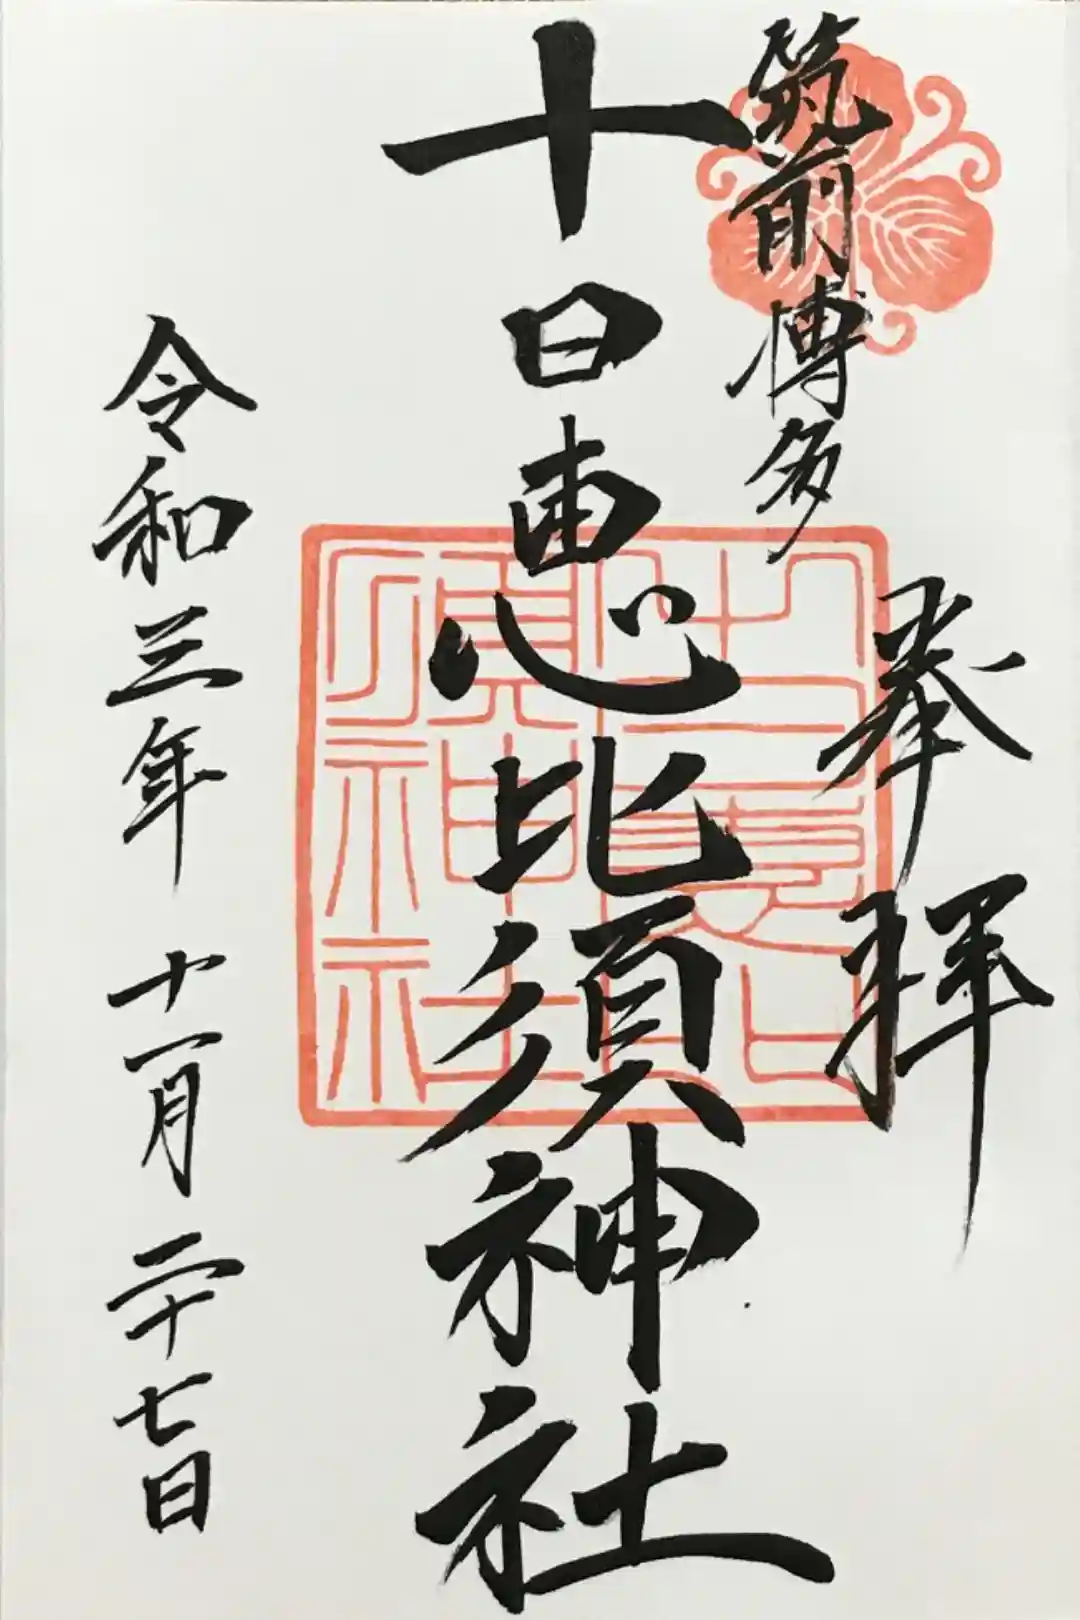 筑前博多
奉拝
十日恵比須神社
十日恵比須神社
令和三年 十一月 二十七日